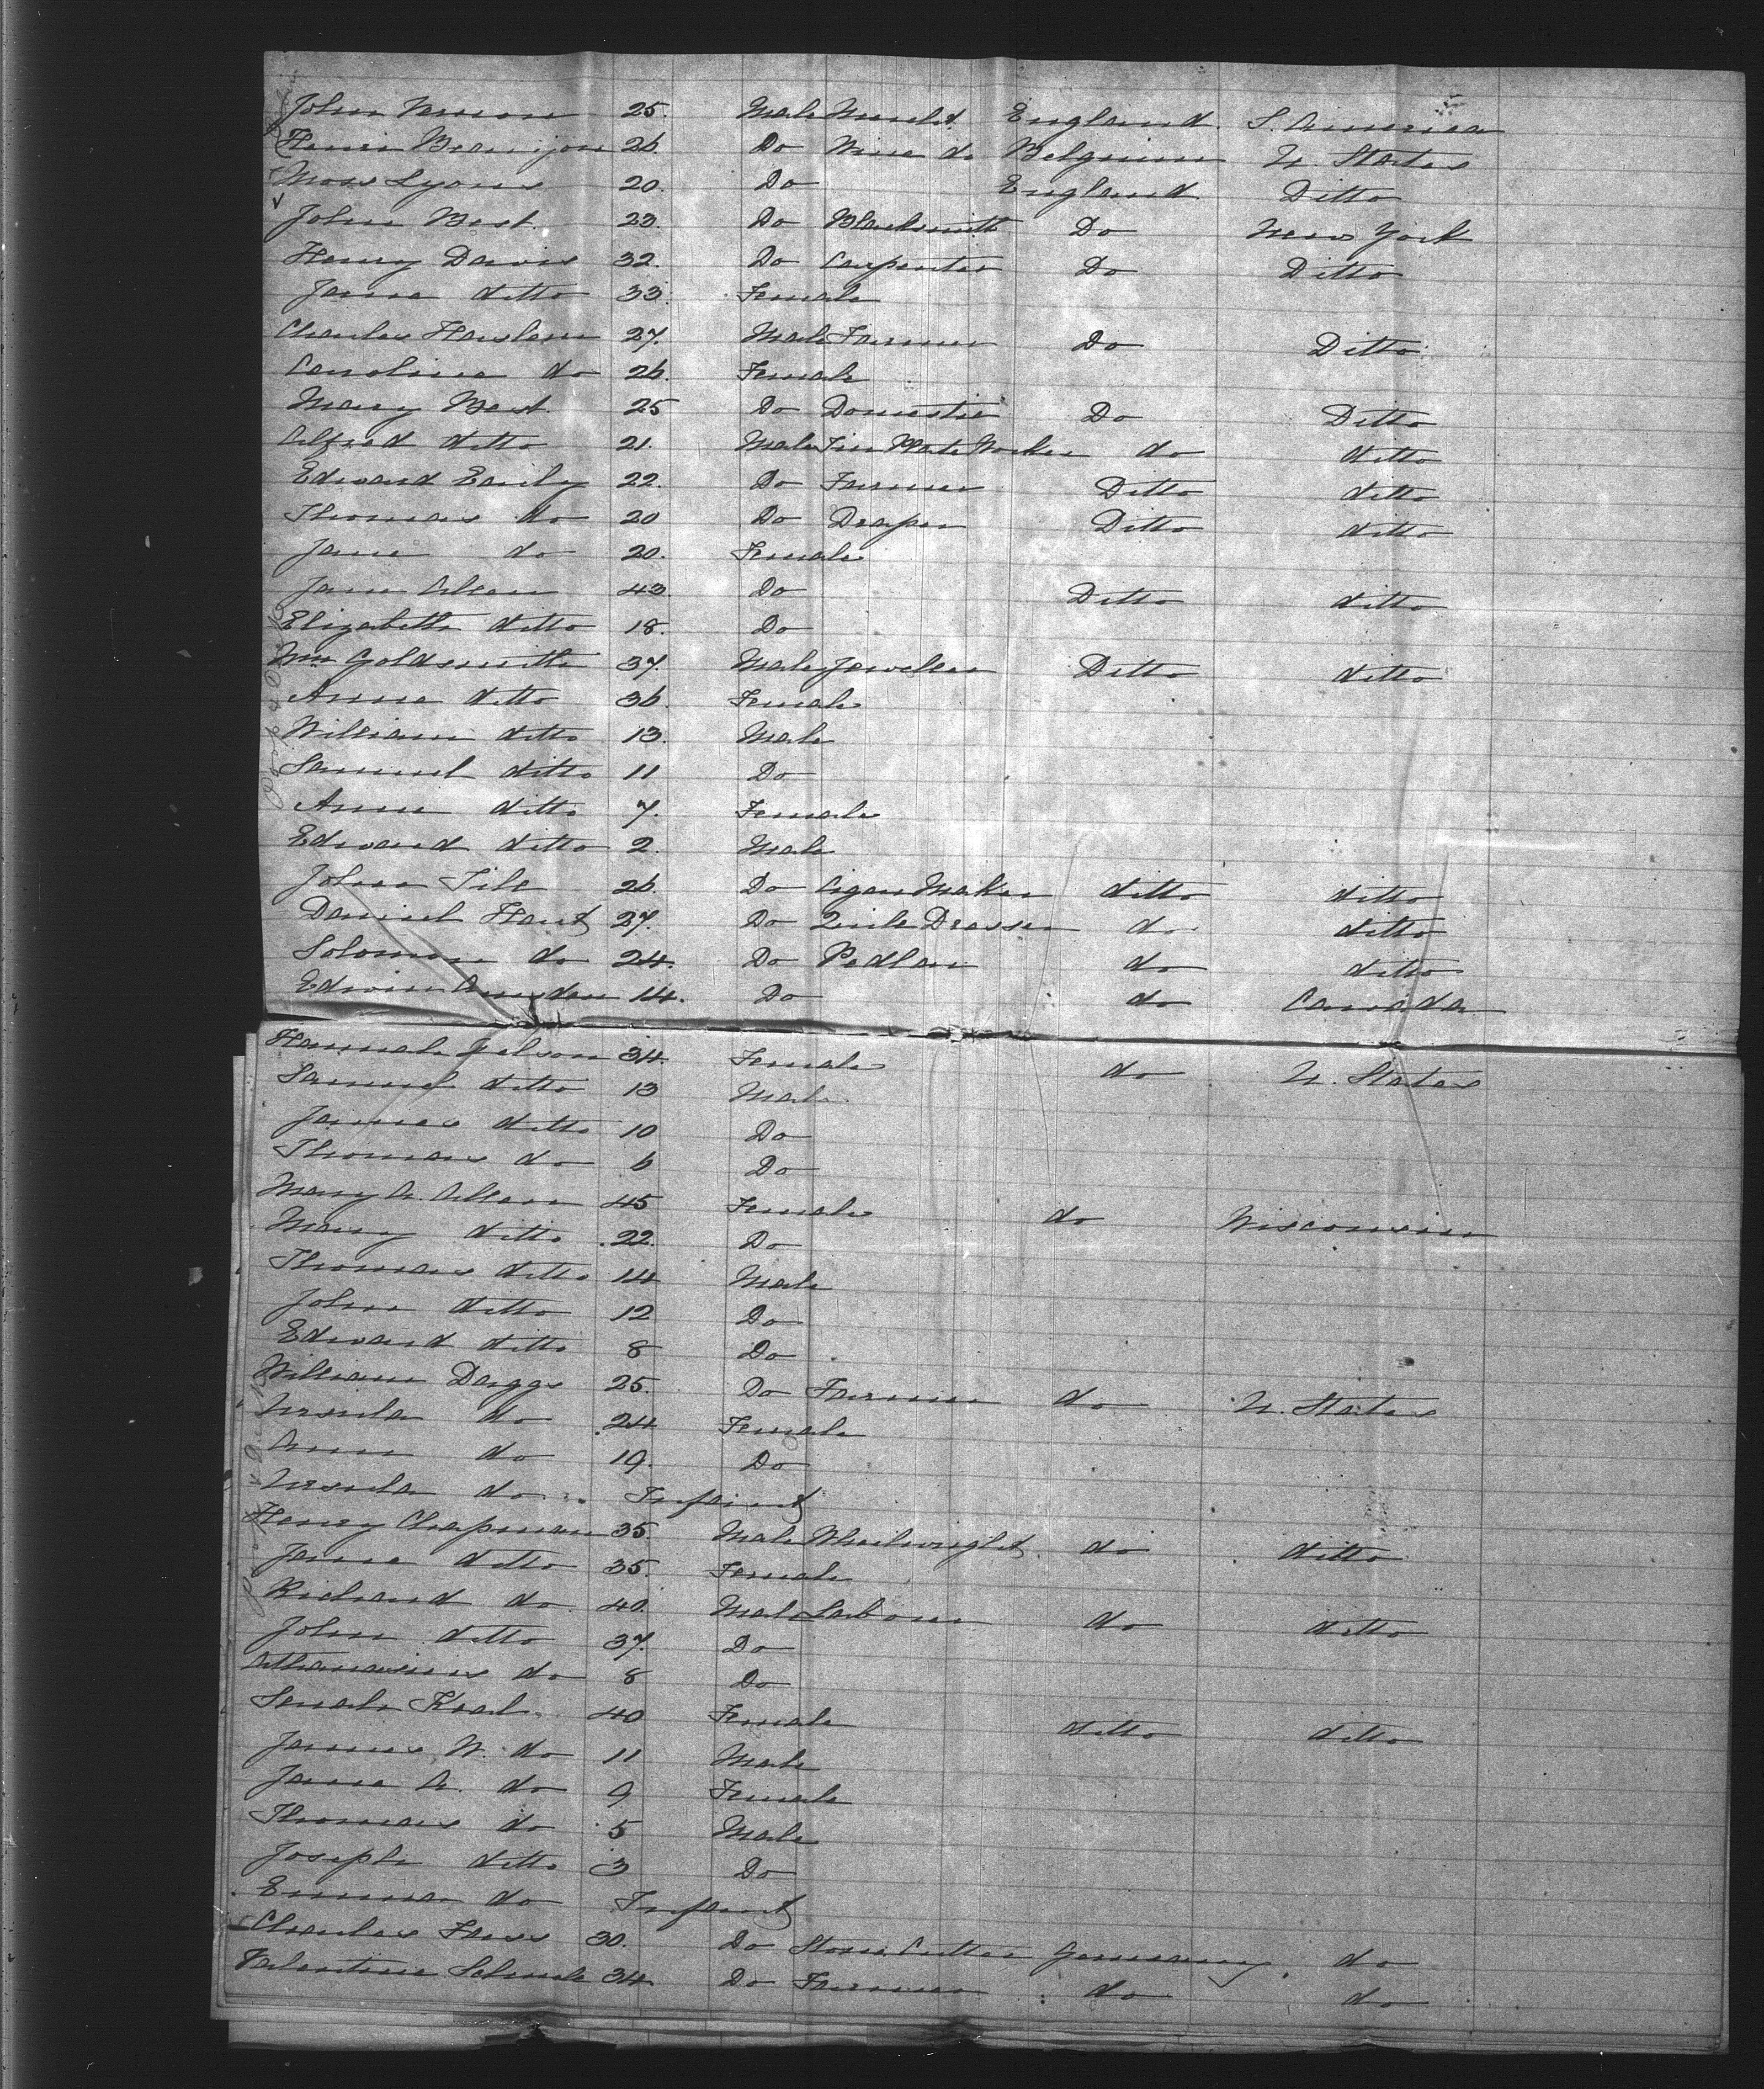 John Vernon 25. Male Mercht England. S. America
Henri 26 Do Wine do Belgium U. States
Moss Lyons 20. Do England Ditto
John Best 23. Do Blacksmith Do New York
Henry Davis 32. Do Carpenter Do Ditto
Jane ditto 33. Female
Charles Haslem 27. Male Farmer Do Ditto
Caroline do 26. Female
Mary Best 25 Do Domestic Do Ditto
Alfred ditto 21. Male Tin Plate Worker do ditto
Edward Early 22. Do Farmer Ditto ditto
Thomas do 20 Do Draper Ditto ditto
Jane do 20. Female
Jane Allen 43 Do Ditto ditto
Elizabeth ditto 18. Do
Wm Goldsmith 37. Male Jeweller Ditto ditto
Anne ditto 36. Female
William ditto 13. Male
Samuel ditto 11 Do
Anne ditto 7. Female
Edward ditto 2. Male
John 26. Do Cigar Maker ditto ditto
Daniel Hart 27. Do Quile Dresser do ditto
Solomon do 24. Do Pedlar do ditto
Edwin 14. Do do Canada
Hannah 34. Female do U. States
Samuel ditto 13 Male
James ditto 10 Do
Thomas do 6 Do
Mary A. Allen 45 Female do Wisconsin
Mary ditto 22. Do
Thomas ditto 14 Male
John ditto 12 Do
Edward ditto 8 Do
William Daggs 25. Do Farmer do U. States
Ursula do 24 Female
Ann do 19. Do
Ursula do Infant
Henry Chapman 35. Male Wheelwright do ditto
Jane ditto 35. Female
Richard do 40. Male Labour do ditto
John ditto 37. Do
Athanasius do 8 Do
Sarah 40 Female ditto ditto
James W. do 11 Male
Jane A. do 9 Female
Thomas do 5 Male
Joseph ditto 3 Do
Emma do Infant
Charles 30. Do Stone Cutter Germany do
Valentine 34 Do Farmer do do